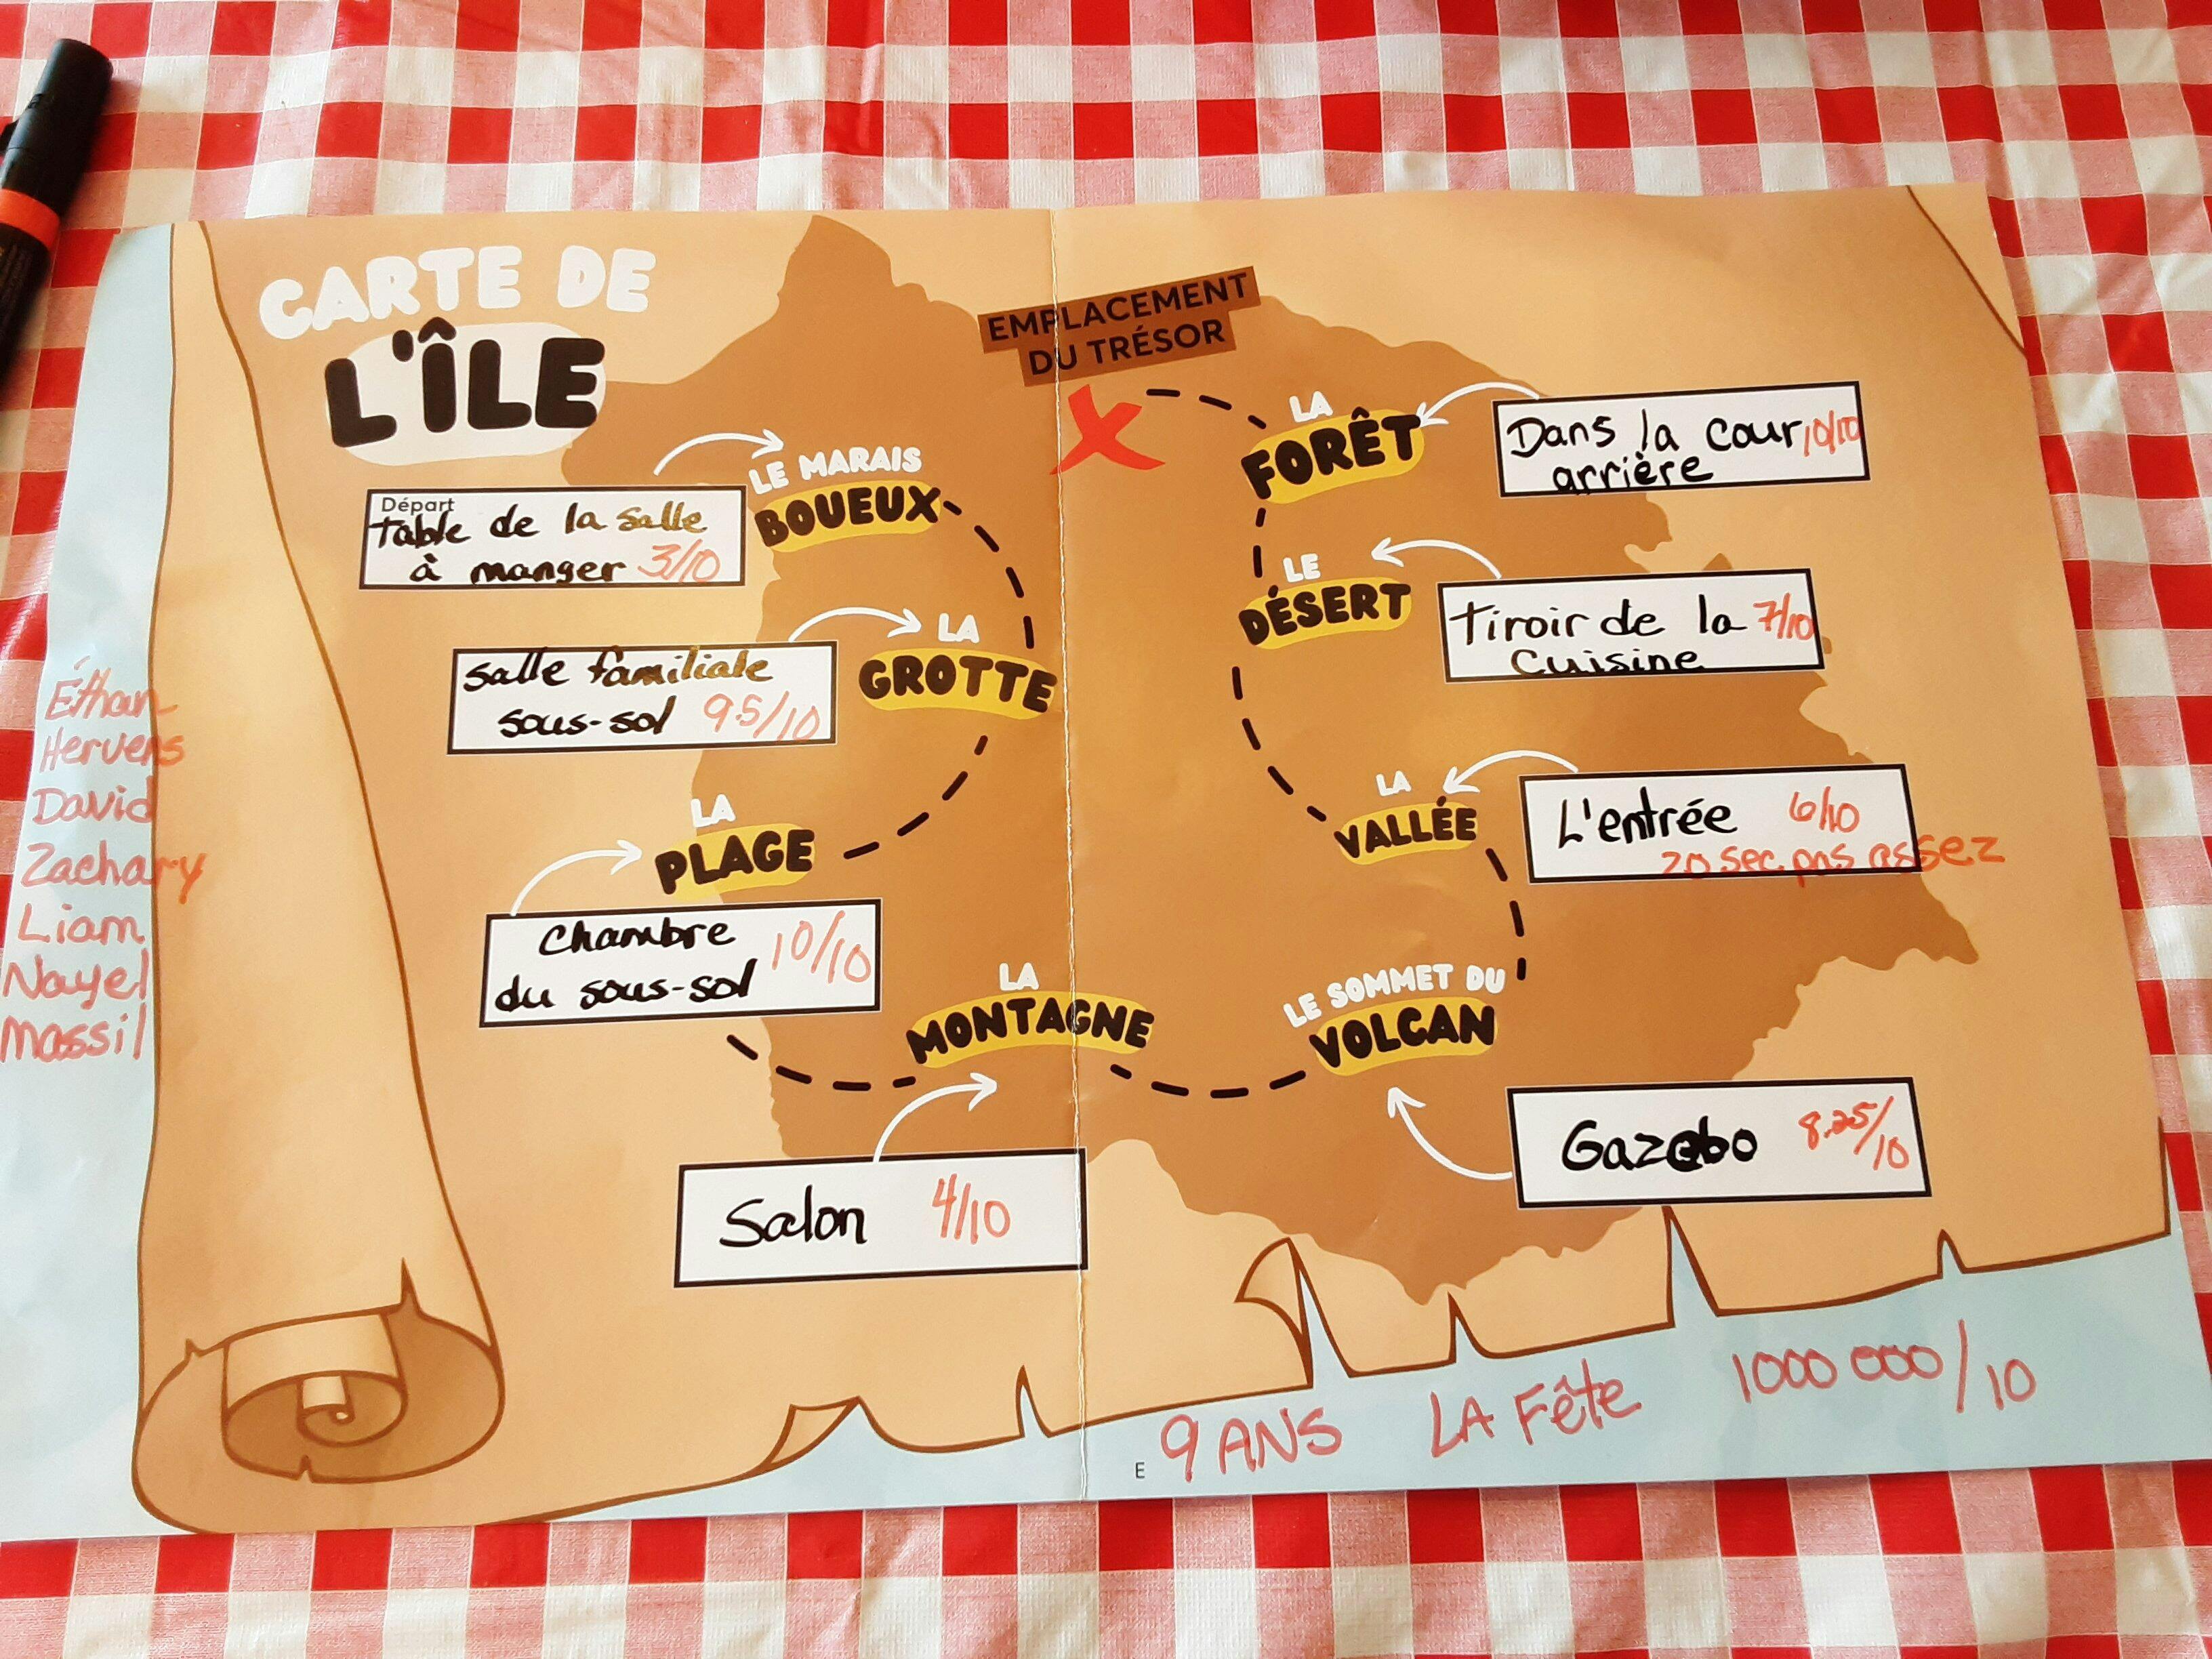 CARTE DE
L'ÎLE
EMPLACEMENT
DU TRÉSOR
LE MARAIS
BOUEUX
Départ
table de la salle
à manger 3/10
LA
GROTTE
salle familiale
sous-sol 9.5/10
LA
PLAGE
Chambre
du sous-sol 10/10
LA
MONTAGNE
Salon 4/10
LE SOMMET DU
VOLCAN
Gazebo 8.25/10
LA
VALLÉE
L'entrée 6/10
20 sec. pas assez
LE
DÉSERT
tiroir de la 7/10
cuisine
LA
FORÊT
Dans la cour 10/10
arrière
Éthan
Hervens
David
Zachary
Liam
Nayel
Massil
E
9 ANS LA FÊTE 1000 000/10